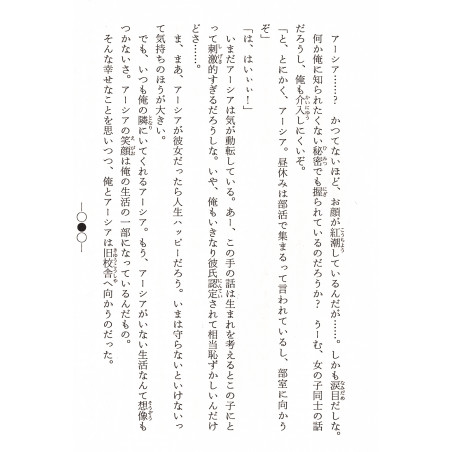 アーシア……? かつてないほど、お顔が紅潮しているんだが……。しかも涙目だしな。
何か俺に知られたくない秘密でも握られているのだろうか? うーむ、女の子同士の話
だろうし、俺も介入しにくいぞ。
「と、とにかく、アーシア。昼休みは部活で集まるって言われているし、部室に向かう
ぞ」
「は、はいぃぃ!」
いまだアーシアは気が動転している。あー、この手の話は生まれを考えるとこの子にと
って刺激的すぎるだろうしな。いや、俺もいきなり彼氏認定されて相当恥ずかしいんだけ
どさ……。
ま、まあ、アーシアが彼女だったら人生ハッピーだろう。いまは守らないといけないっ
て気持ちのほうが大きい。
でも、いつも俺の隣にいてくれるアーシア。もう、アーシアがいない生活なんて想像も
つかないさ。アーシアの笑顔は俺の生活の一部になっているんだもの。
そんな幸せなことを思いつつ、俺とアーシアは旧校舎へ向かうのだった。
―○●○―